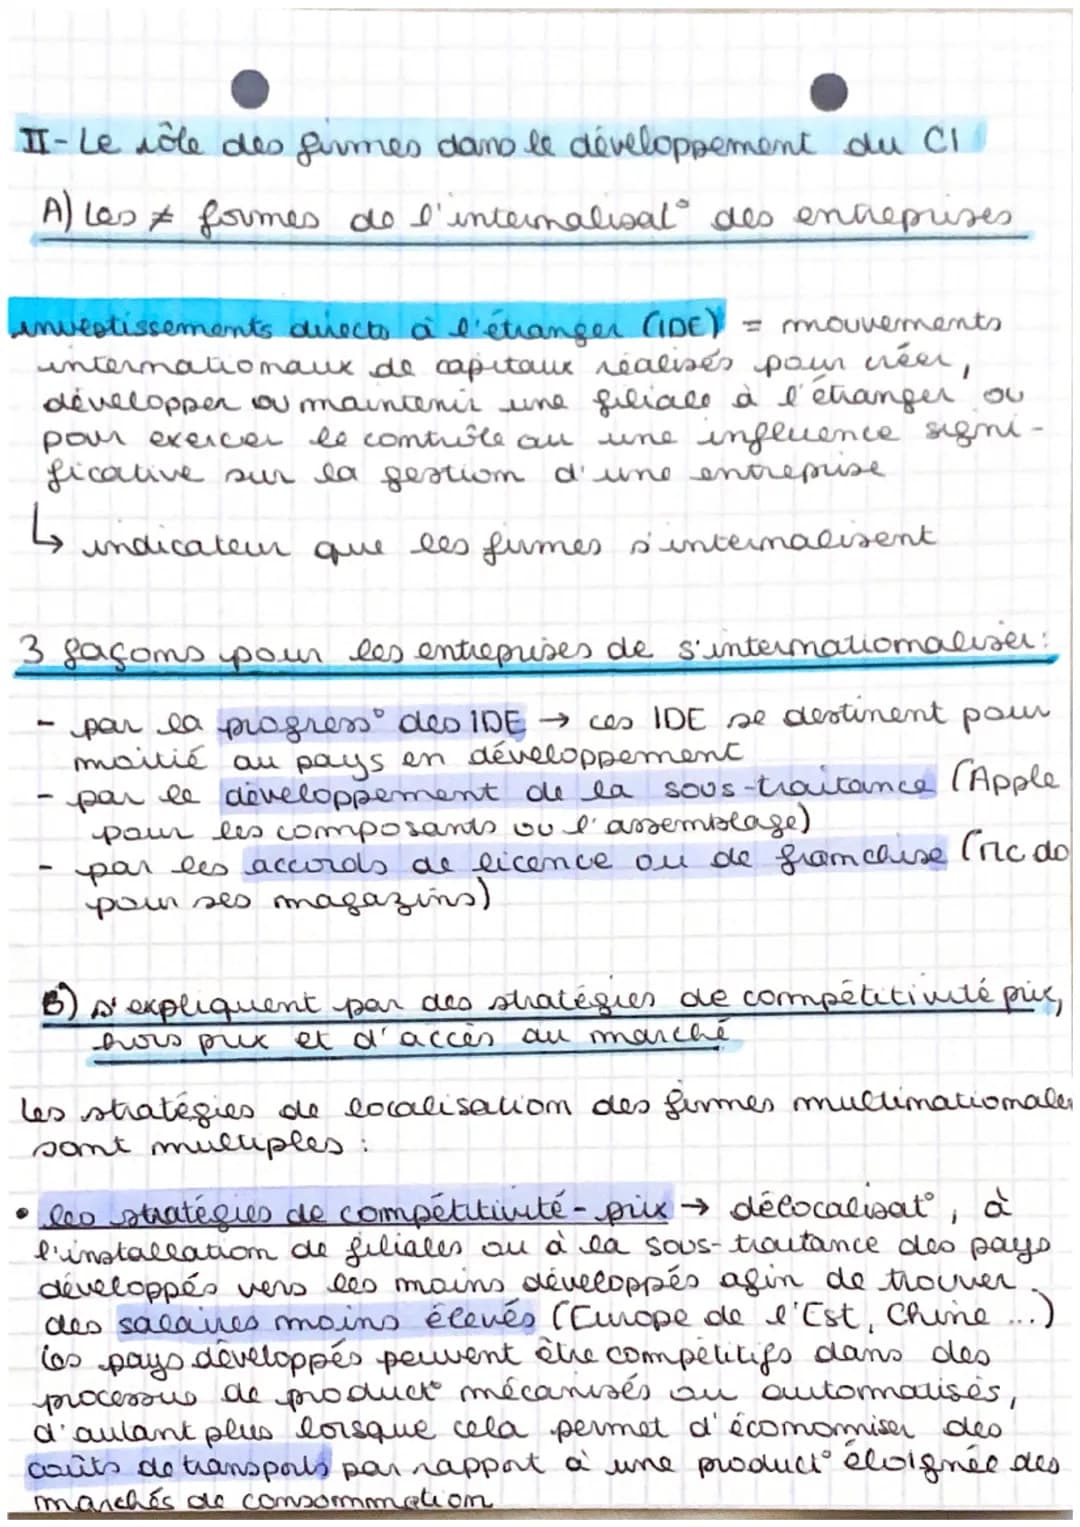 II - Le rôle des firmes dans le développement du CI
A) Les ≠ formes de l'internalisat° des entreprises
investissements directs à l'étranger (IDE) = mouvements
internationaux de capitaux réalisés pour créer,
développer ou maintenir une filiale à l'étranger ou
pour exercer le contrôle ou une influence signi-
ficative sur la gestion d'une entreprise
↳ indicateur que les firmes s'internalisent
3 façons pour les entreprises de s'internationaliser :
- par la progress° des IDE → ces IDE se destinent pour
moitié au pays en développement
- par le développement de la sous-traitance (Apple
pour les composants ou l'assemblage)
- par les accords de licence ou de franchise (Mc do
pour ses magazins)
B) s'expliquent par des stratégies de compétitivité prix,
hors prix et d'accès au marché
Les stratégies de localisation des firmes multinationales
sont multiples :
• les stratégies de compétitivité-prix → délocalisat°, à
l'installation de filiales ou à la sous-traitance des pays
développés vers les moins développés afin de trouver
des salaires moins élevés (Europe de l'Est, Chine ...)
Les pays développés peuvent être compétitifs dans des
processus de product° mécanisés ou automatisés,
d'autant plus lorsque cela permet d'économiser des
coûts de transports par rapport à une product° éloignée des
marchés de consommation